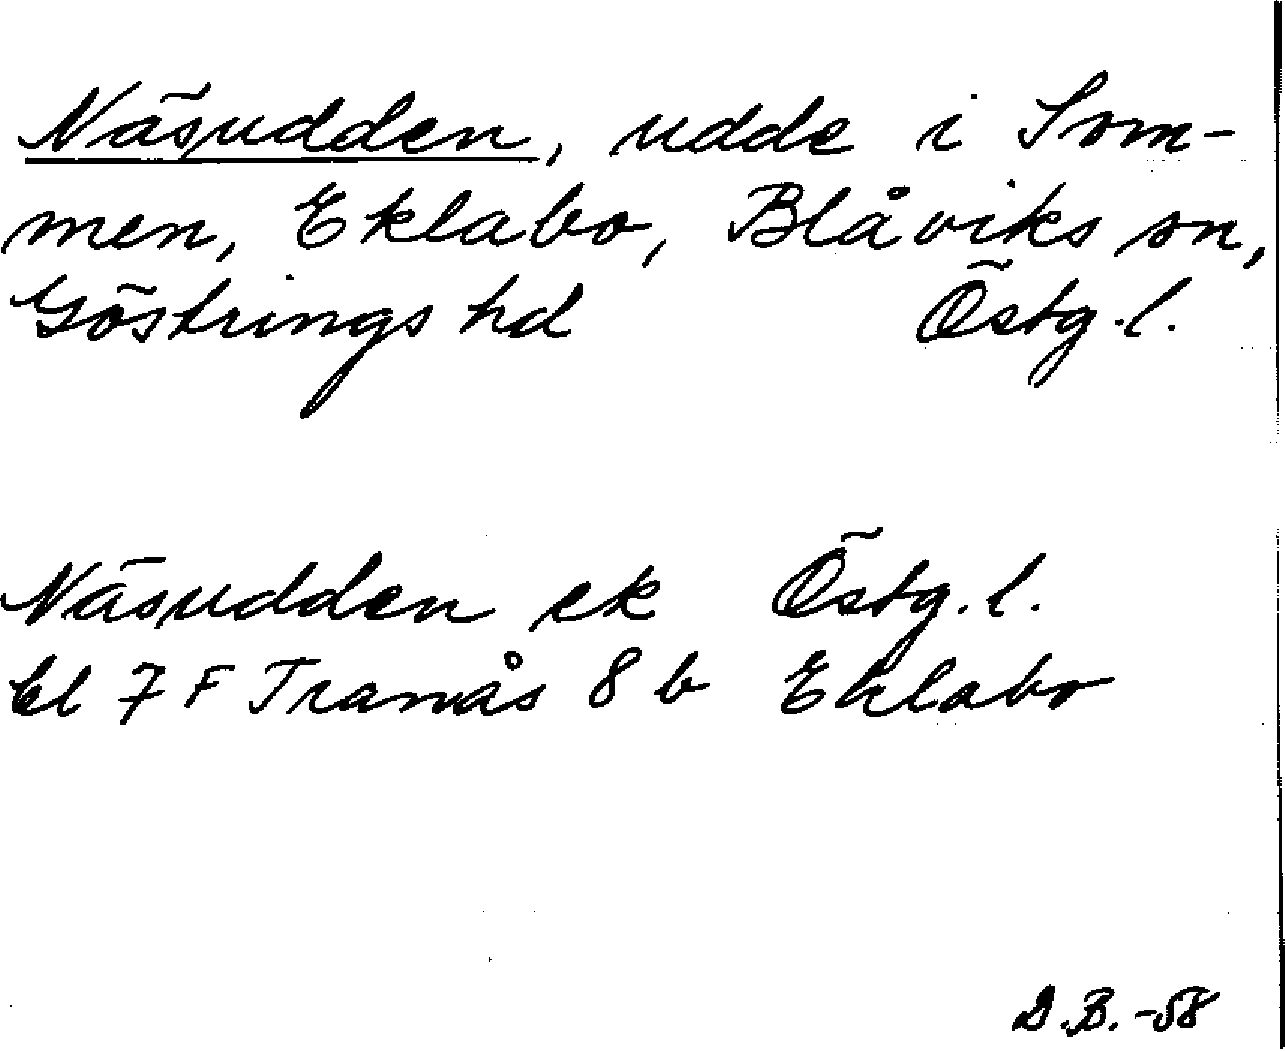 Näsudden, udde i Som-
men, Eklabo, Blåviks sn,
Göstrings hd Östg. l.
Näsudden ek Östg. l.
bl 7 F Tranås 8 b Eklabo
D.B. -58